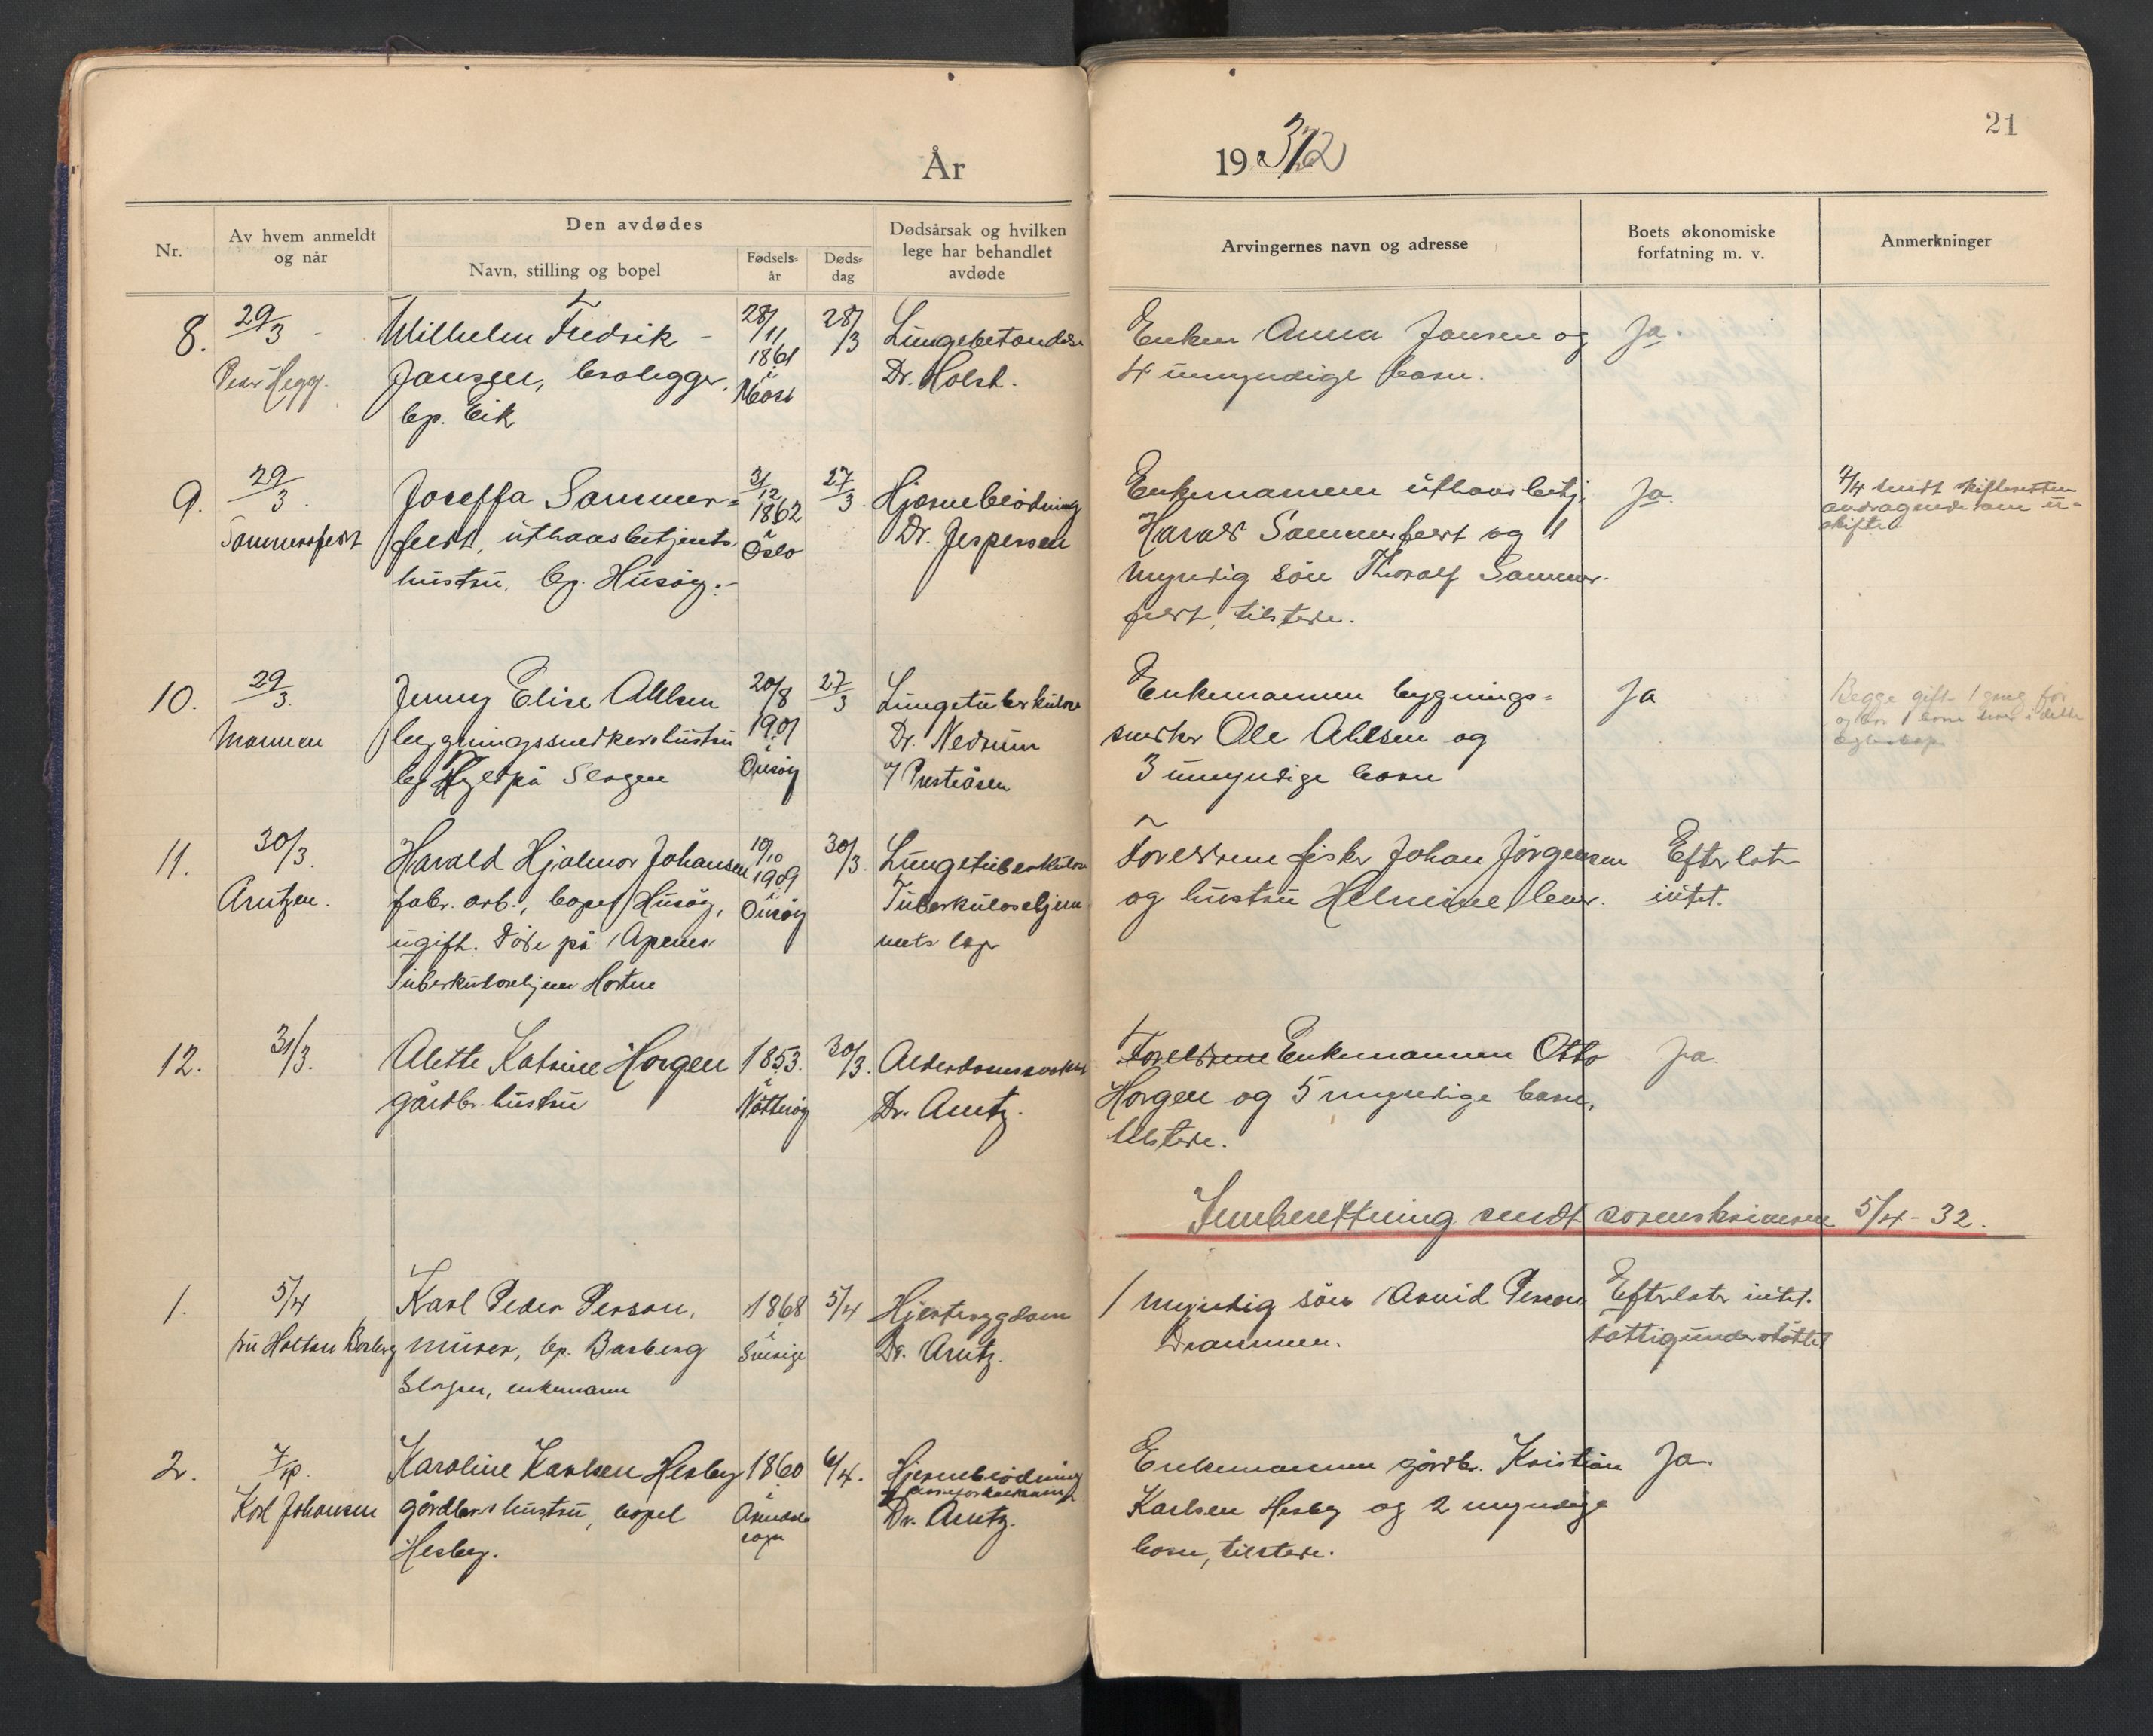 21
År 1932
Nr.
Av hvem anmeldt
og når
Den avdødes
Navn, stilling og bopel
Fødsels-
år
Døds-
dag
Dødsårsak og hvilken
lege har behandlet
avdøde
Arvingernes navn og adresse
Boets økonomiske
forfatning m. v.
Anmerkninger
8.
29/3
Peder Hegg.
Wilhelm Fredrik
Jansen, brolegger,
bp. Eik
28/11
1861
i
Moss
28/3
Lungebetendelse
Dr. Holst.
Enken Anna Jansen og
4 umyndige barn.
Ja.
9.
29/3.
Sommerfeldt
Joseffa Sommer-
feldt, uthavsbetjents
hustru, bp. Husøy.-
31/12
1862
i
Oslo
27/3.
Hjerneblødning
Dr. Jespersen
Enkemannen uthavsbetj.
Harald Sommerfeldt og 1
myndig søn Thoralf Sommer-
feldt, tilstede.
Ja.
2/4 sendt skifteretten
andragende om u-
skifte
10.
29/3.
Mannen
Jenny Elise Ahlsen
bygningssnedkershustru
bp Hyldpå Slagen
20/8
1901
i
Onsøy
27/3
Lungetuberkulose
Dr. Nedrum
7 Presteåsen
Enkemannen bygnings-
snedker Ole Ahlsen og
3 umyndige barn
Ja
Begge gift 1 gang før
og har 1 barn hver i dette
ægteskap
11.
30/3.
Arntzen.
Harald Hjalmar Johansen
fabr. arb., bopel Husøy,
ugift. Døde på Apenes
Tuberkulosehjem Horten
10/10
1909
i
Onsøy
30/3.
Lungetuberkulose
Tuberkulosehjem
mets læge
Foreldrene fisker Johan Jørgensen
og hustru Helmine lever.
Efterlater
intet.
12.
31/3.
Alette Katrine Horgen
gårdbr. hustru
1853.
i
Nøtterøy
30/3.
Alderdomssvakhet
Dr. Arntz.
Foreldrene Enkemannen Otto
Horgen og 5 myndige barn,
tilstede.
Ja.
Innberettning sendt sorenskriveren 5/4 - 32.
1.
5/4
fru Holtan Barberg
Karl Peder Person,
murer, bp. Barberg
Slagen, enkemann
1868
i
Sverige
5/4
Hjertesygdom
Dr. Arntz.
1 myndig søn Arvid Person
Drammen.
Efterlater intet.
fattigunderstøttet
2.
7/4.
Karl Johansen
Karoline Karlsen Hesby
gårdbrs hustru, bopel
Hesby.
1860
i
sogn
6/4.
Hjerneblødning
Dr. Arntz.
Enkemannen gårdbr. Kristian
Karlsen Hesby og 2 myndige
barn, tilstede.
Ja.